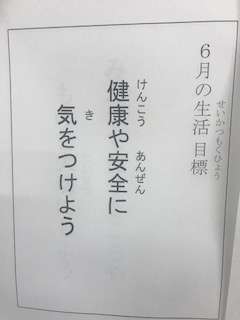 6月の生活目標
せいかつもくひょう
健康や安全に
けんこう あんぜん
気をつけよう
き